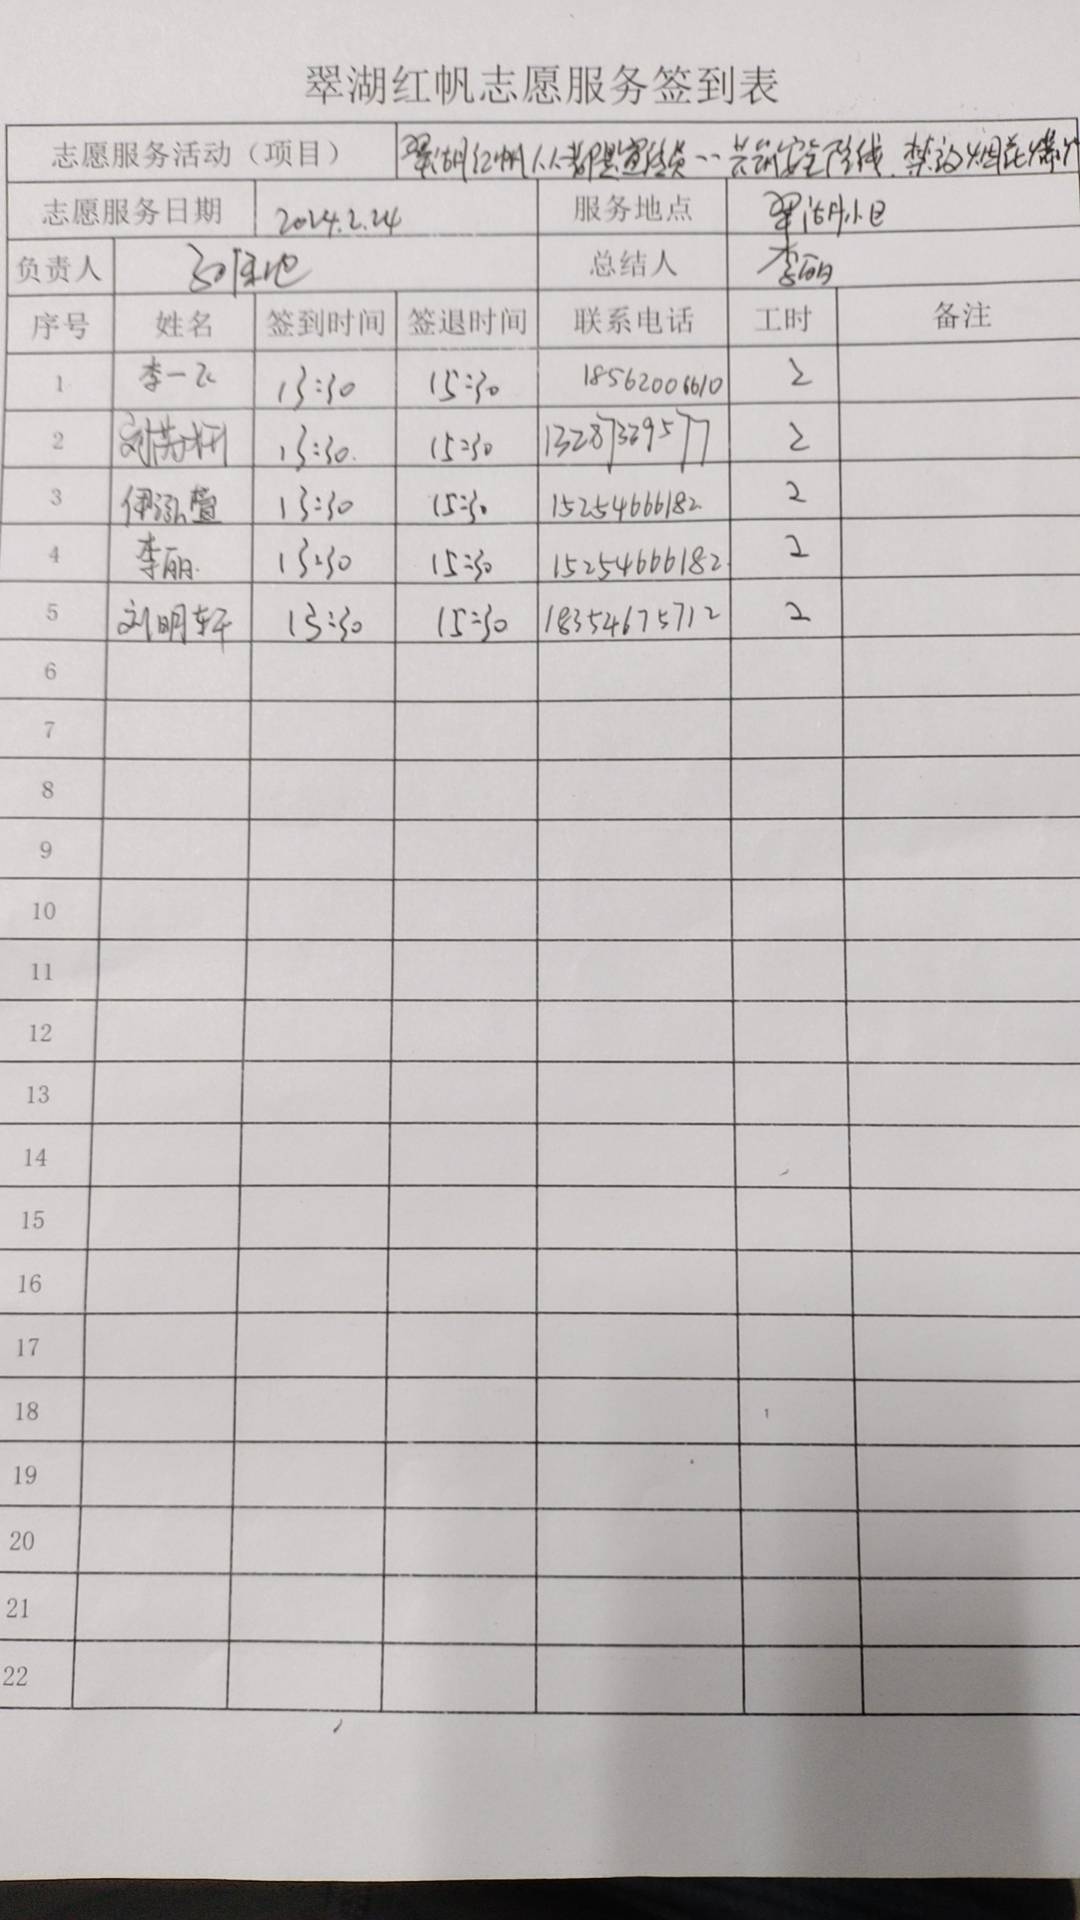 翠湖红帆志愿服务签到表
志愿服务活动（项目） 翠湖红帆人人都是宣传员--共筑安全防线.禁放烟花爆竹
志愿服务日期 2024.2.24 服务地点 翠湖小区
负责人 总结人 李丽
序号 姓名 签到时间 签退时间 联系电话 工时 备注
1 李一飞 13:30 15:30 18562006610 2
2 13:30. 15:30 13287339577 2
3 伊泓萱 13:30 15:30 15254666182 2
4 李丽. 13:30 15:30 15254666182. 2
5 刘明轩 13:30 15:30 18354675712 2
6
7
8
9
10
11
12
13
14
15
16
17
18
19
20
21
22